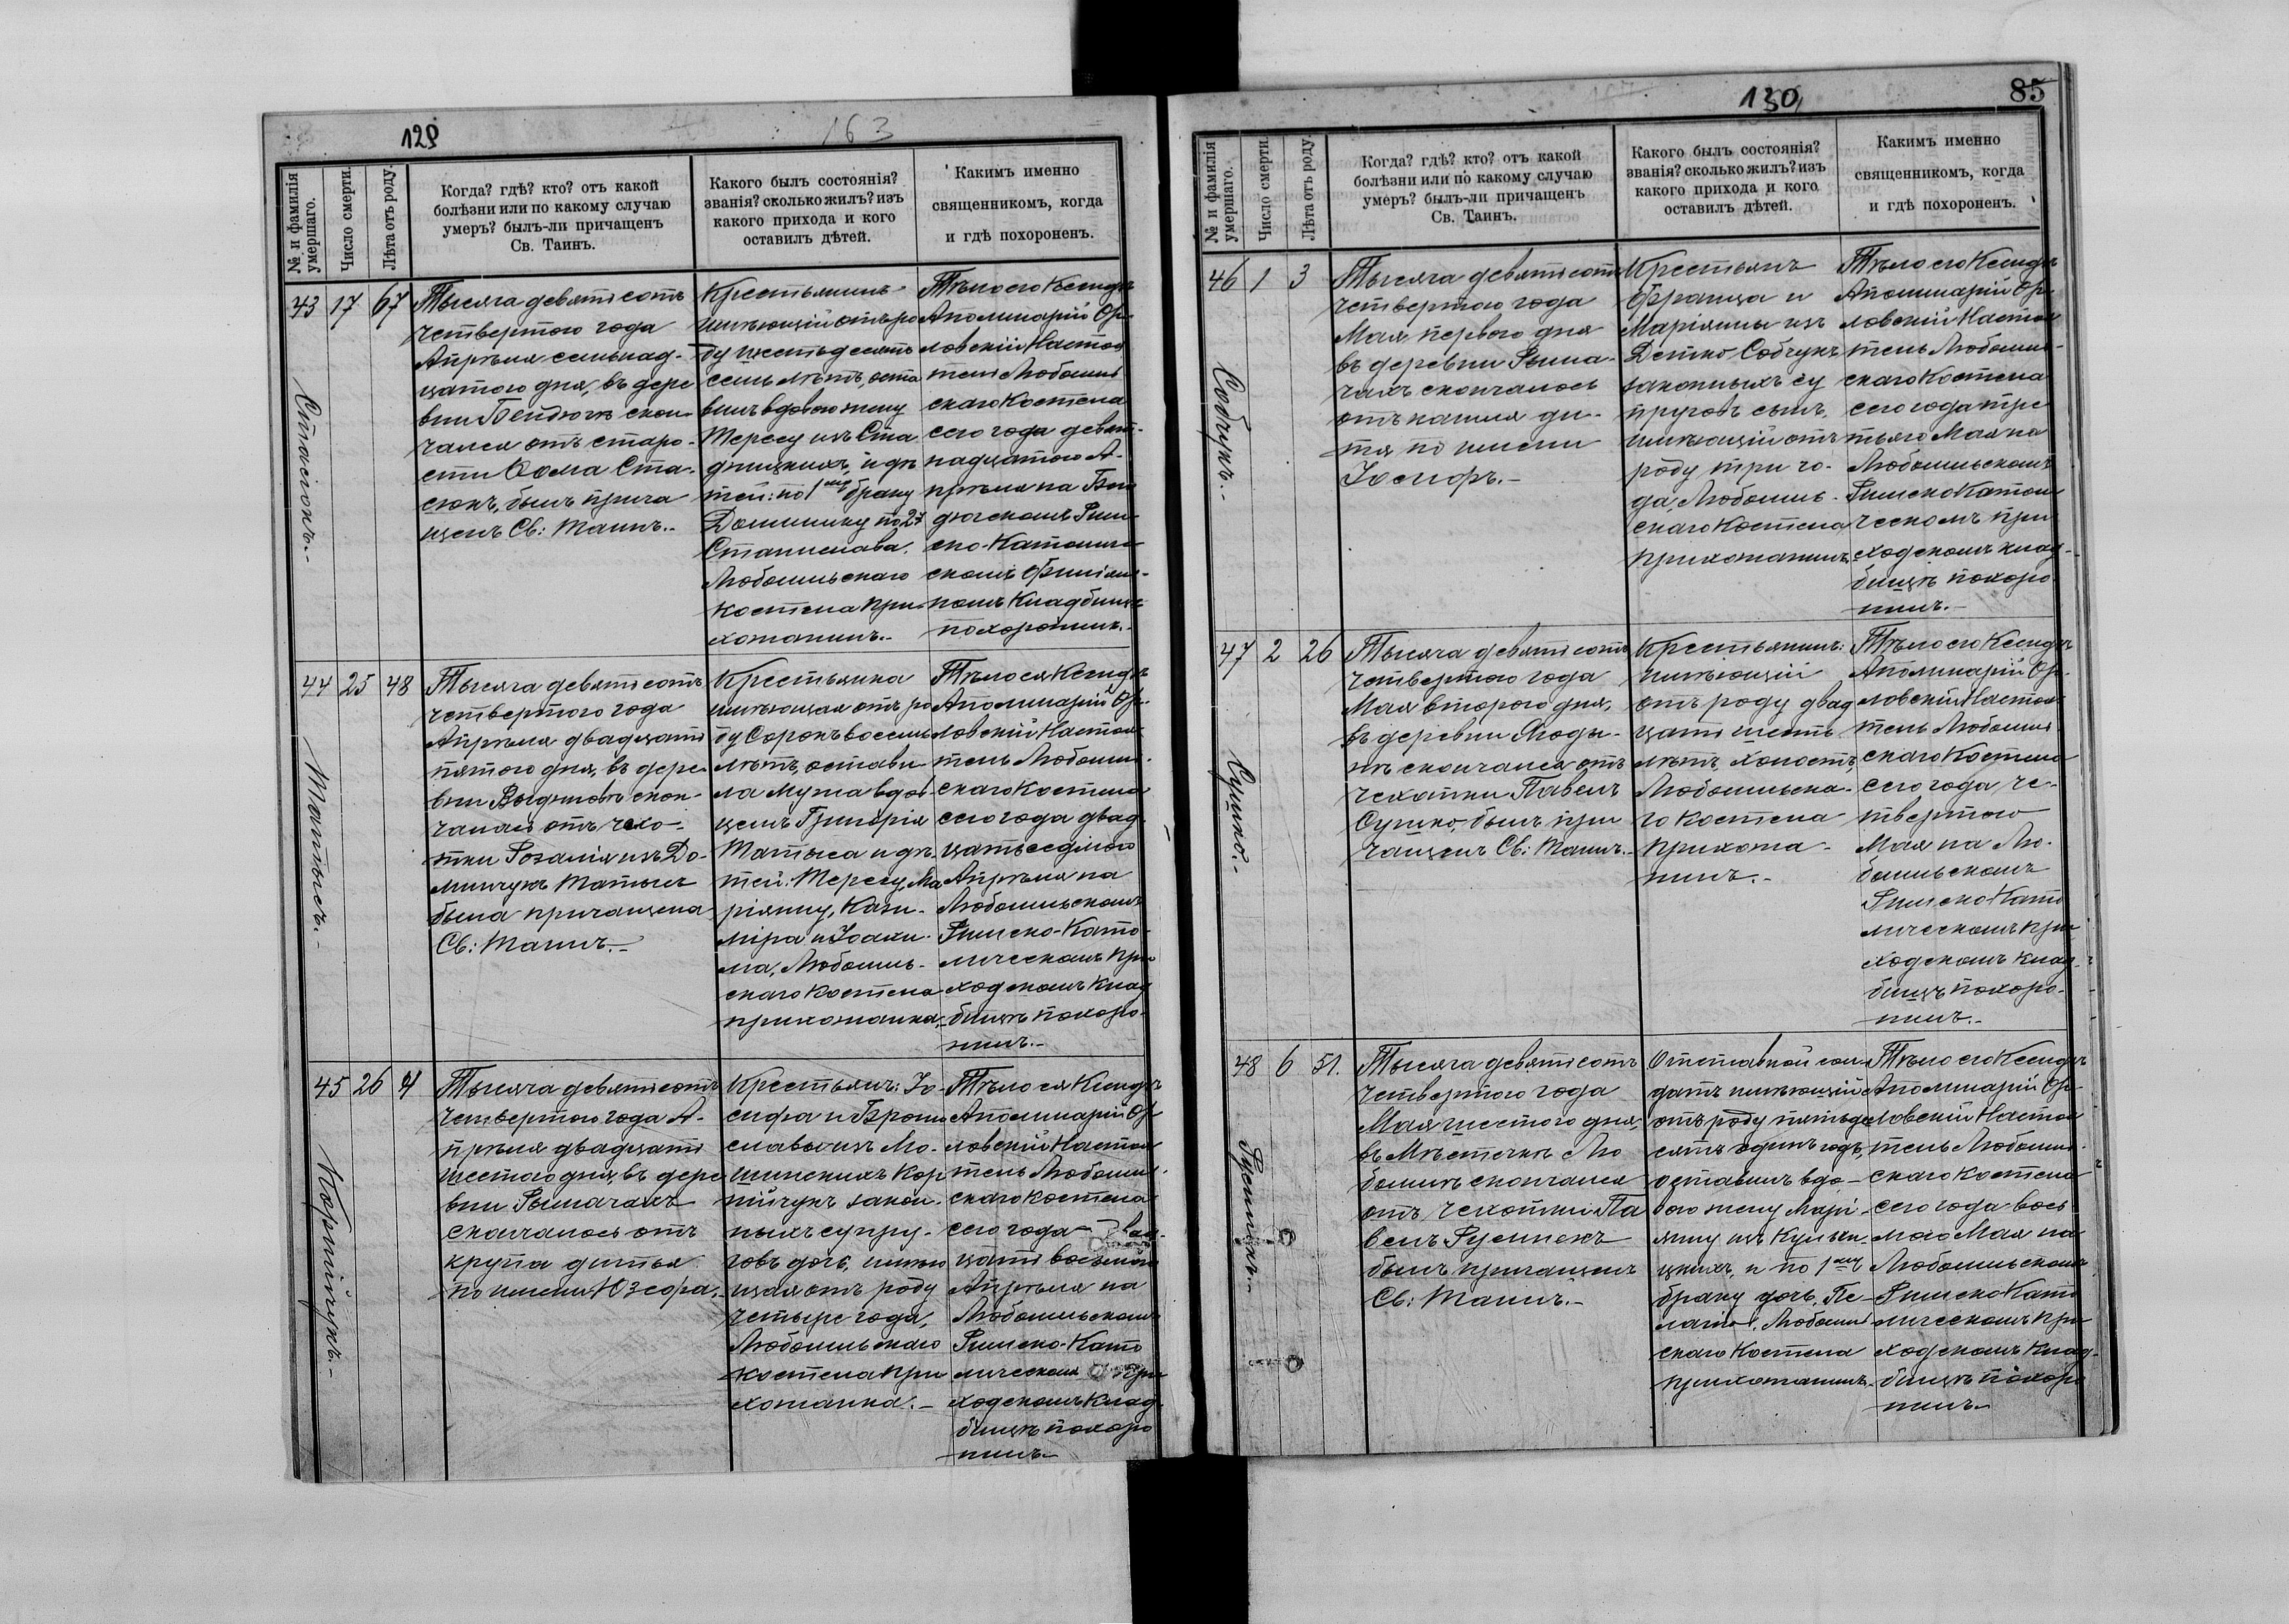 129
163
№ и фамилія умершаго.
Число смерти.
Лѣта отъ роду.
Когда? гдѣ? кто? отъ какой
болѣзни или по какому случаю
умеръ? былъ-ли причащенъ
Св. Таинъ.
Какого былъ состоянія?
званія? сколько жилъ? изъ
какого прихода и кого
оставилъ дѣтей.
Какимъ именно
священникомъ, когда
и гдѣ похороненъ.
43 17 67
Стасюкъ.-
Тысяча девятьсотъ
четвертого года
Апрѣля семьнад-
цатого дня, въ дере
вни Бендюгѣ скон-
чался отъ старо-
сти Ѳома Ста-
сюкъ, былъ прича
щенъ Св: Таинъ.-
Крестьянинъ
имѣющій отъ ро
ду шестьдесятъ
семь лѣтъ, оста
вилъ вдовою жену
Тересу изъ Ста
дницкихъ, и дѣ
тей: по 1му браку
Доминику по 2у
Станислава.
Любомльскаго
костела при-
хожанинъ.-
Тѣло его Ксендзъ
Аполинарій Ор-
ловскій Настоя
тель Любомль
скаго костела
сего года девят-
надцатого А-
прѣля на Бен
дюгскомъ Рим
ско-Католиче
скомъ Филіаль-
номъ Кладбищѣ
похоронилъ.-
44 25 48
Матысъ.-
Тысяча девятьсотъ
четвертого года
Апрѣля двадцать
пятого дня, въ дере-
вни скон-
чалась отъ чахо-
тки Розалія изъ До-
минчукъ Матысъ
была причащена
Св: Таинъ.-
Крестьянка
имѣющая отъ ро
ду Сорокъ восемь
лѣтъ, остави-
ла мужа вдов-
цемъ Григорія
Матыса и дѣ-
тей: Тересу, Ма
ріянну, Кази-
міра и Іоахи-
ма, Любомль-
скаго костела
прихожанка.-
Тѣло ея Ксендзъ
Аполинарій Ор-
ловскій Настоя-
тель Любомль-
скаго костела
сего года двад
цать седьмого
Апрѣля на
Любомльскомъ
Римско-Като-
лическомъ при
ходскомъ Клад
бищѣ похоро-
нилъ.-
45 26 4
Корпійчукъ.-
Тысяча девятьсотъ
четвертого года А-
прѣля двадцать
шестого дня, въ дере
вни Рымачахъ
скончалось отъ
крупа дитья
по имени Юзефа.-
Крестьянъ: Іо-
сифа и Брони
славы изъ Мо-
шинскихъ Кор
пійчукъ закон-
ныхъ супру-
говъ дочь, имѣю
щая отъ роду
четыре года,
Любомльскаго
костела при
хожанка.-
Тѣло ея Ксендзъ
Аполинарій Ор
ловскій Настоя
тель Любомль-
скаго костела
сего года двад-
цать восьмого
Апрѣля на
Любомльскомъ
Римско-Като
лическомъ при
ходскомъ Клад-
бищѣ похоро
нилъ.-
130
85
№ и фамилія умершаго.
Число смерти.
Лѣта отъ роду.
Когда? гдѣ? кто? отъ какой
болѣзни или по какому случаю
умеръ? былъ-ли причащенъ
Св. Таинъ.
Какого былъ состоянія?
званія? сколько жилъ? изъ
какого прихода и кого
оставилъ дѣтей.
Какимъ именно
священникомъ, когда
и гдѣ похороненъ.
46 1 3
Собчукъ.-
Тысяча девятьсотъ
четвертого года
Мая первого дня
въ деревни Рыма-
чахъ скончалось
отъ кашля ди-
тя по имени
Іосифъ.-
Крестьянъ
Франца и
Маріянны изъ
Собчукъ
законныхъ су
пруговъ сынъ,
имѣющій отъ
роду три го-
да, Любомль-
скаго костела
прихожанинъ.
Тѣло его Ксендзъ
Аполинарій Ор-
ловскій Настоя
тель Любомль-
скаго Костела
сего года тре
тьяго Мая на
Любомльскомъ
Римско Католи
ческомъ при
ходскомъ клад-
бищѣ похоро
нилъ.-
47 2 26
Сушко.-
Тысяча девятьсотъ
четвертого года
Мая второго дня,
въ деревни Ягоды-
нѣ скончался отъ
чахотки Павелъ
Сушко, былъ при
чащенъ Св: Таинъ.-
Крестьянинъ:
имѣющій
отъ роду двад
цать шесть
лѣтъ, холостъ,
Любомльска-
го костела
прихожа-
нинъ.-
Тѣло его Ксендзъ
Аполинарій Ор-
ловскій Настоя-
тель Любомль
скаго Костела
сего года че-
твертого
Мая на Лю-
бомльскомъ
Римско Като
лическомъ при
ходскомъ клад-
бищѣ похоро-
нилъ.-
48 6 51.
Русинекъ.-
Тысяча девятьсотъ
четвертого года
Мая шестого дня,
въ Мѣстечкѣ Лю
бомлѣ скончался
отъ чахотки Па
велъ Русинекъ
былъ причащенъ
Св: Таинъ.-
Отставной сол
датъ имѣющій
отъ роду пятьде
сятъ одинъ годъ,
оставилъ вдо-
вою жену Марі-
янну изъ
и по 1му
браку дочь, Пе-
лагію, Любомль
скаго Костела
прихожанинъ.
Тѣло его Ксендзъ
Аполинарій Ор-
ловскій Настоя
тель Любомль-
скаго костела
сего года вось
мого Мая на
Любомльскомъ
Римско Като
лическомъ при
ходскомъ Клад-
бищѣ похоро
нилъ.-